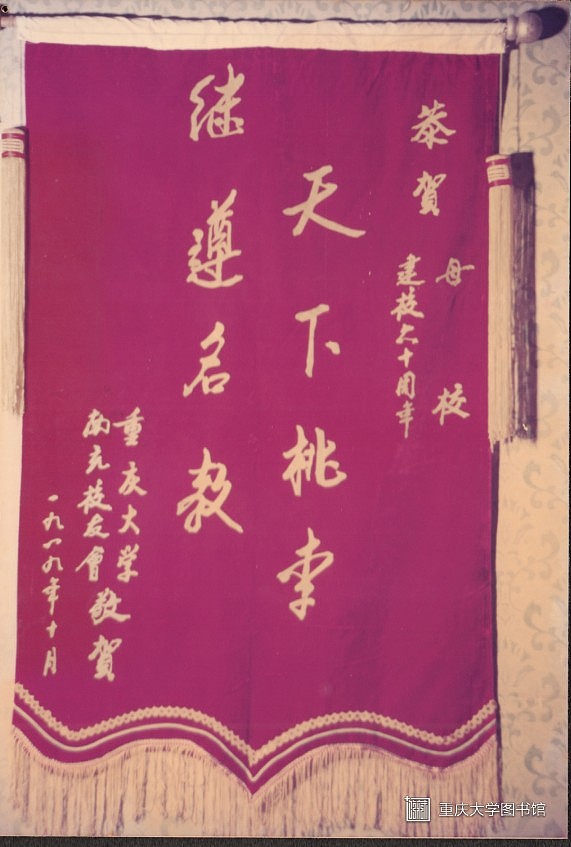 恭賀
母校
建校六十周年
天下桃李
继遵名教
重庆大学
南充校友會敬賀
一九八九年十月
重庆大学图书馆